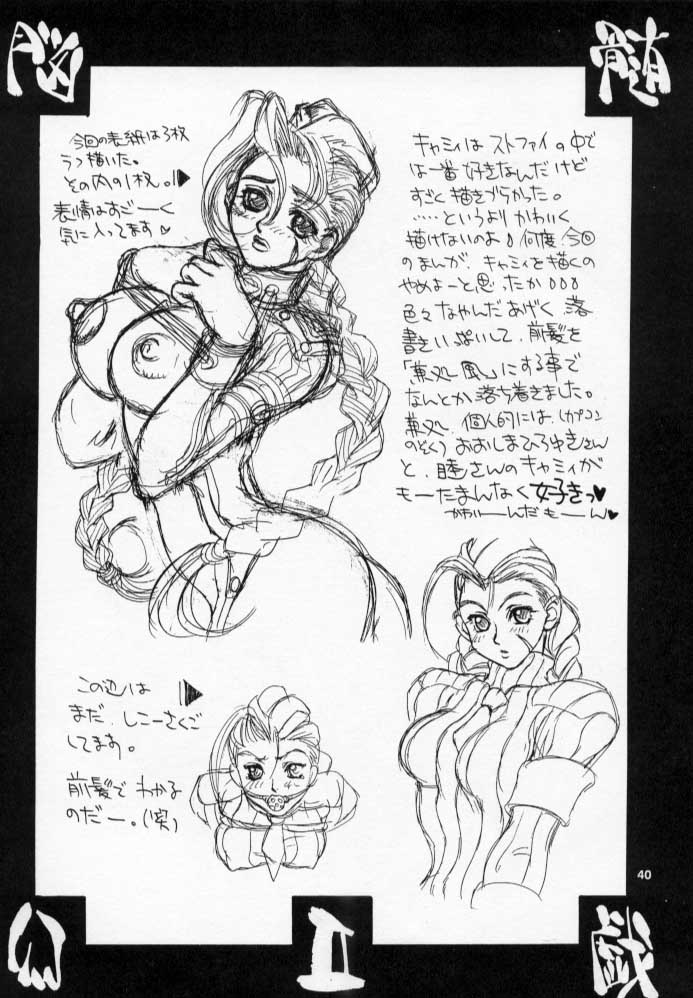 脳
髄
今回の表紙は3枚
うつ描いた。
その内の1枚。
表情はすごーく
気に入ってます♥
キャミィは ストファイの中で
は一番好きなんだけど
すごく描きづらかった。
……というより かわいく
描けないのよ 何度 今回
のまんが、キャミィを描くの
やめよーと思ったか
色々なやんだあげく 落
書きいっぱいして、前髪を
風」にする事で
なんとか落ち着きました。
個人的には、(カプコン
のぞく) おおしまひろゆきさん
と、睦さんのキャミィが
もーたまんなく 好きっ♥
かわいーんだもーん♥
この辺は
まだ しこーさくご
してます。
前髪で わかる
のだー。(笑)
40
II
戯